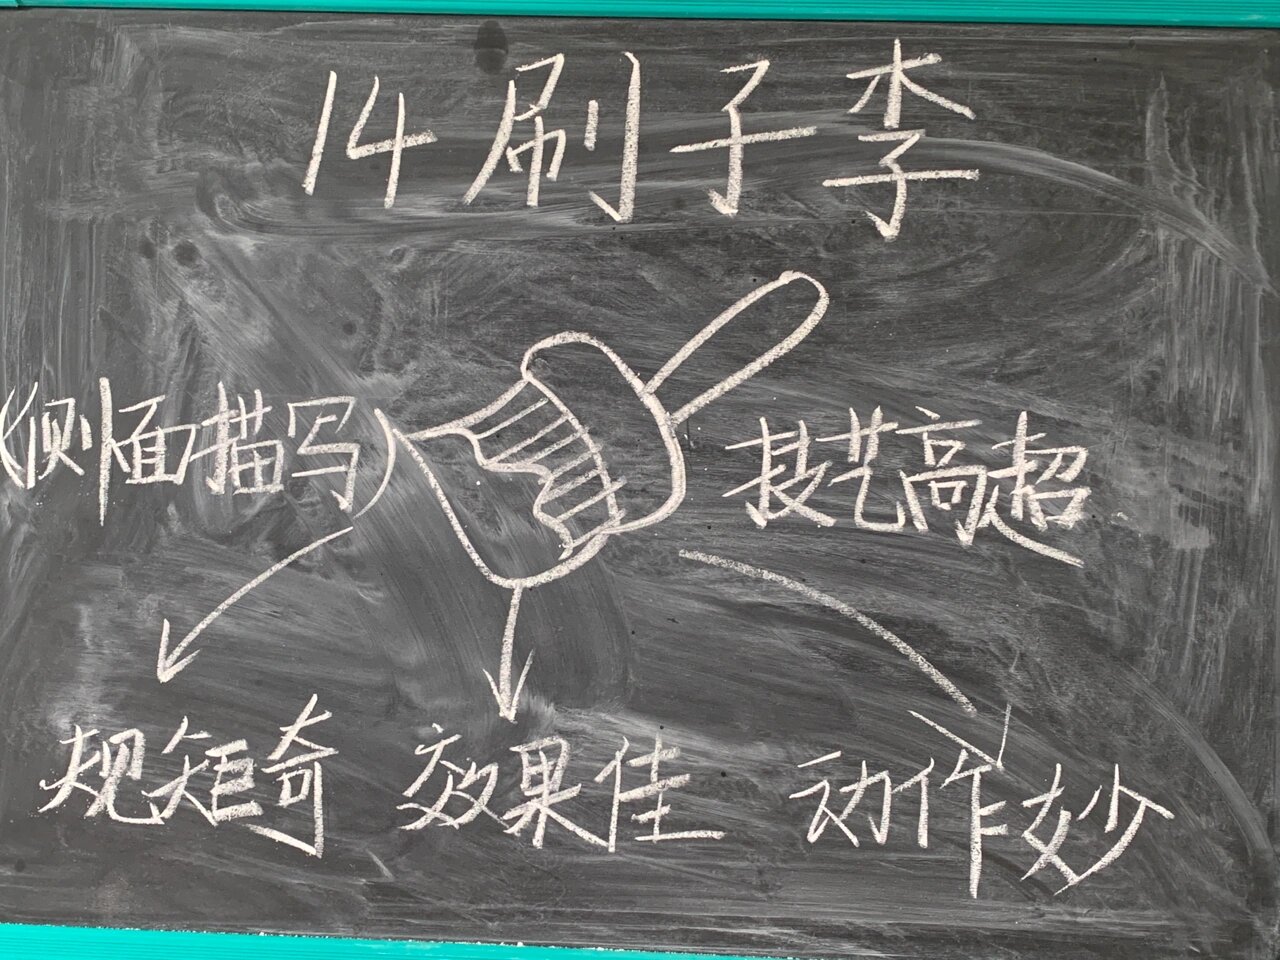 14 刷子李
(侧面描写)
技艺高超
规矩奇 效果佳 动作妙